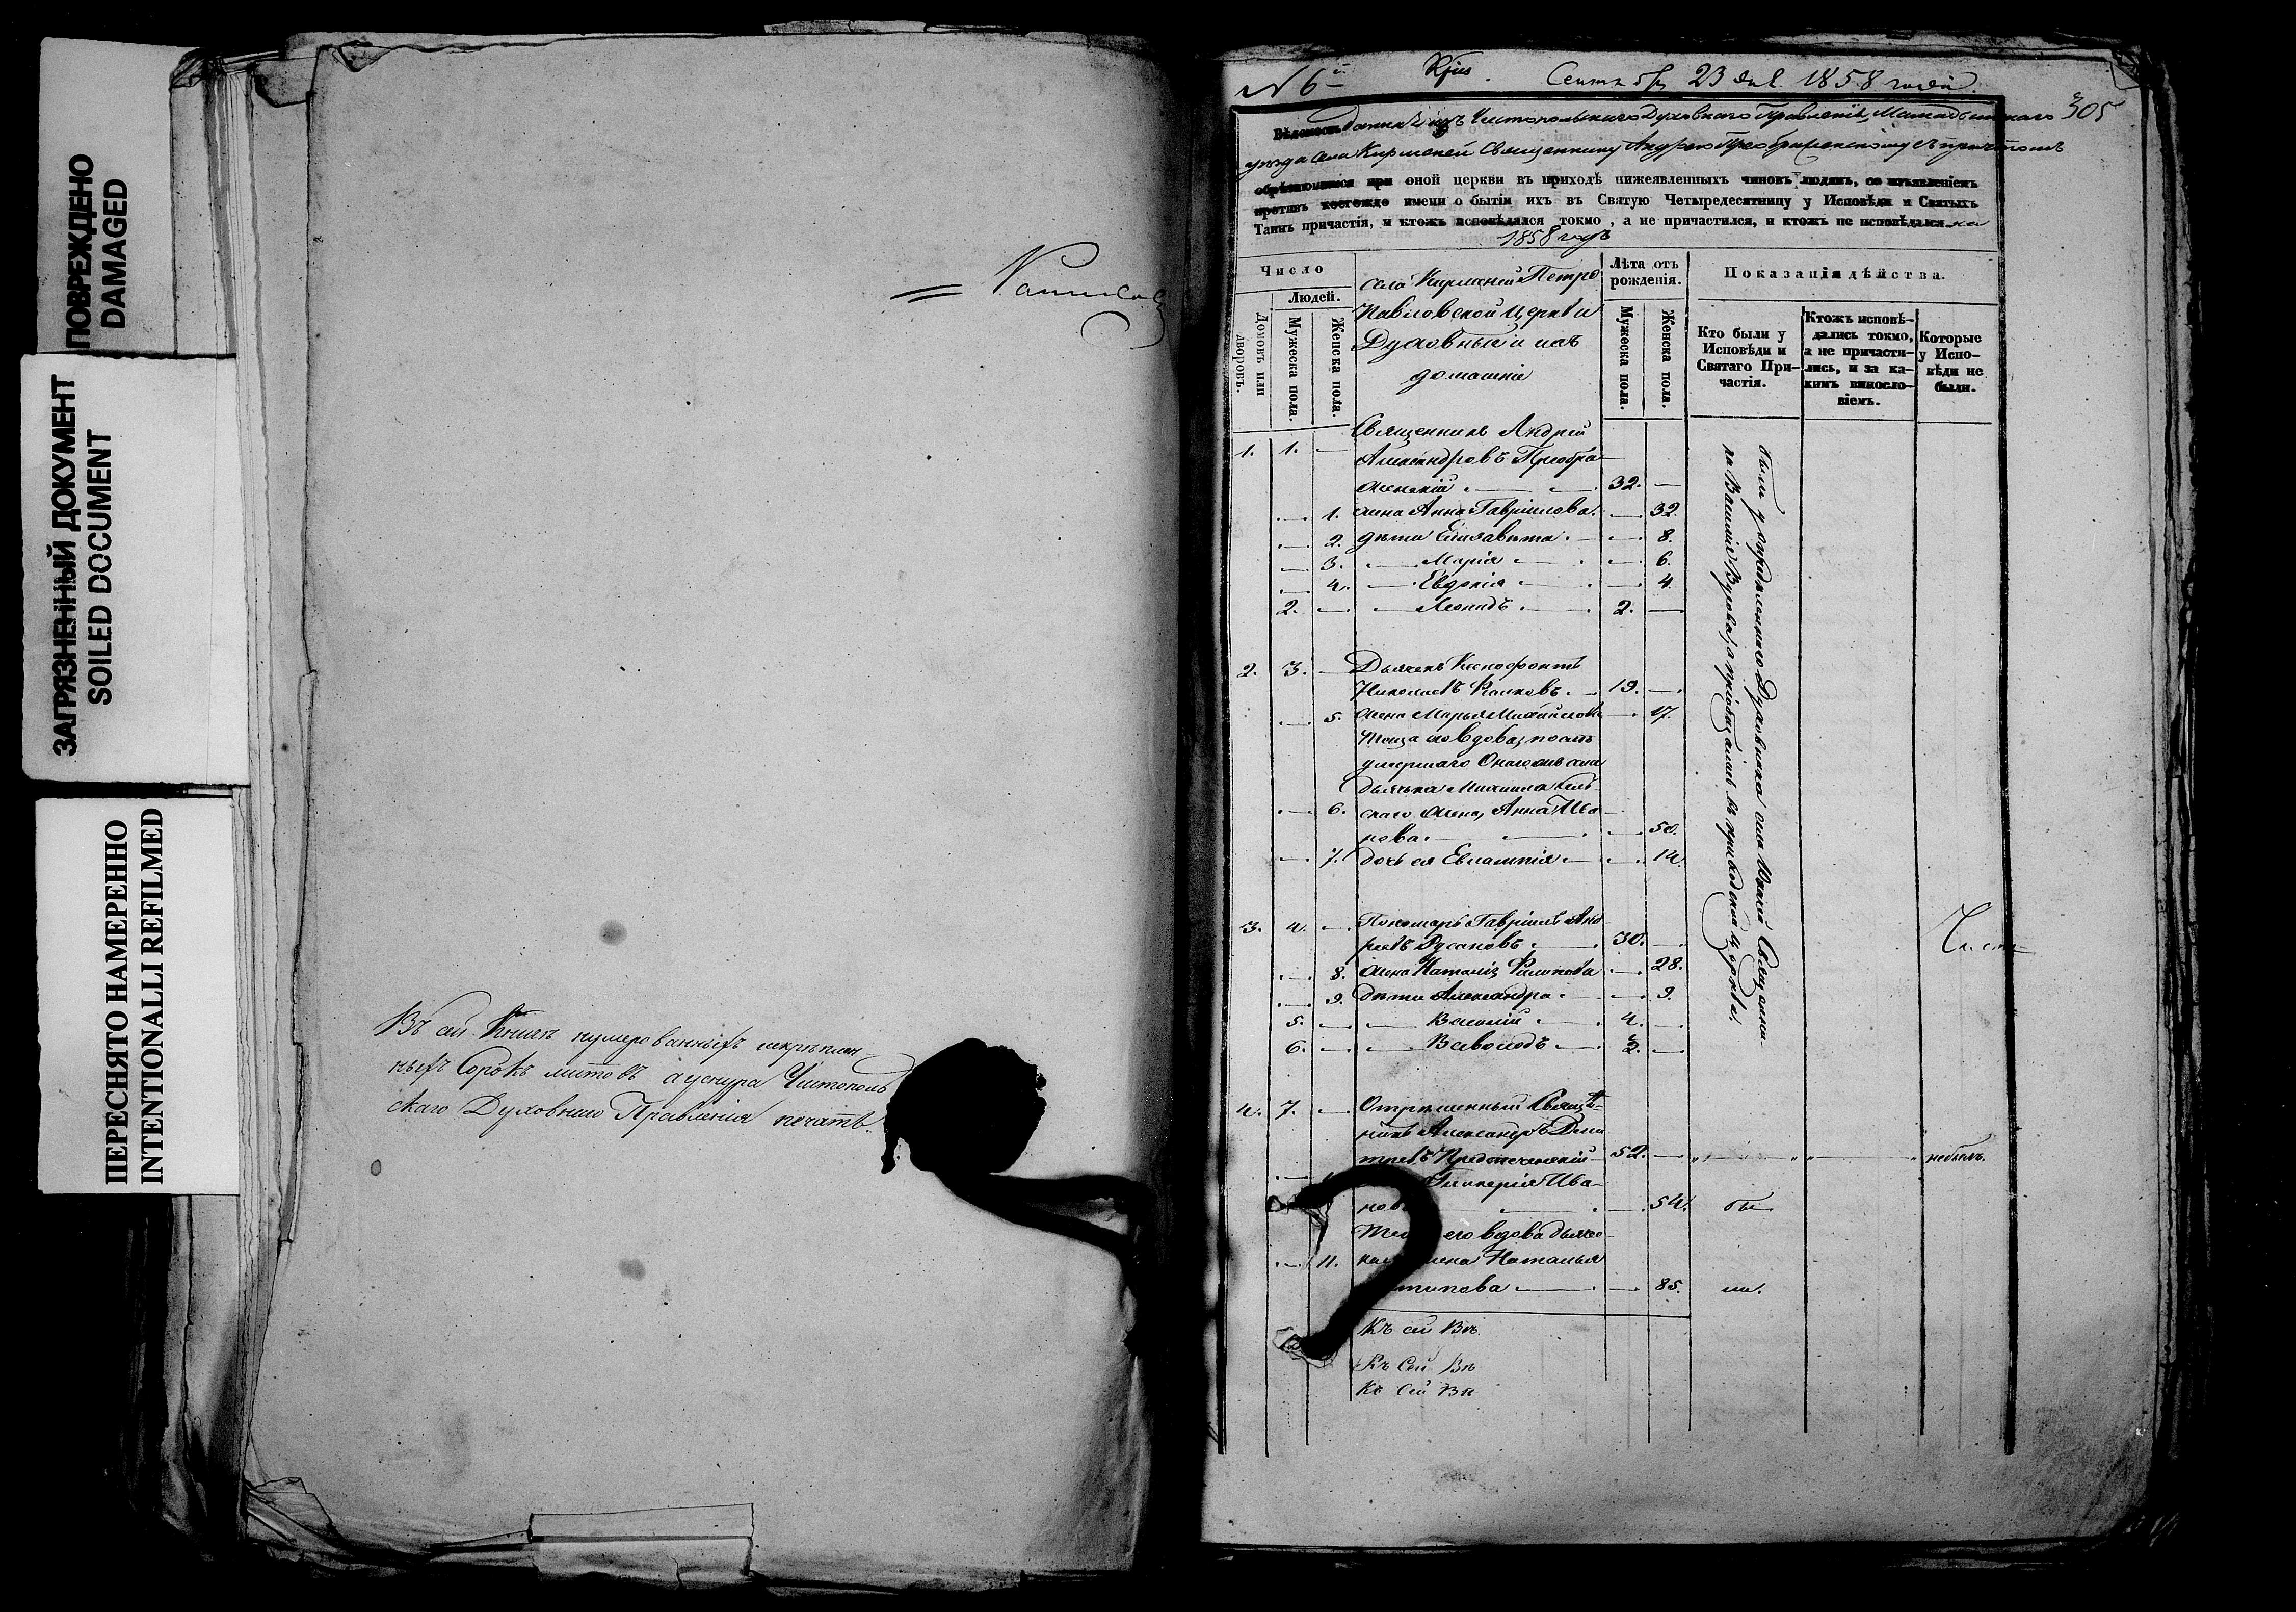 ПОВРЕЖДЕНО
DAMAGED
ЗАГРЯЗНЕННЫЙ ДОКУМЕНТ
SOILED DOCUMENT
ПЕРЕСНЯТО НАМЕРЕННО
INTENTIONALLI REFILMED
Въ сей Книгѣ нумерованныхъ
ныхъ Сорокъ листовъ Чистополь
скаго Духовнаго Правленія печать.
N 6й
23 дня 1858 года.
305
Дана изъ Чистопольскаго Духовнаго Правленія, Мамадышскаго
уѣзда села Кирменей Священнику Андрею Преображенскому съ причтомъ
обрѣтающимся при оной церкви въ приходѣ нижеявленныхъ чиновъ людямъ, со изъявленіемъ
противъ коегождо имени о бытіи ихъ въ Святую Четыредесятницу у Исповѣди и Святыхъ
Таинъ причастія, и ктожъ исповѣдался токмо, а не причастился, и ктожъ не исповѣдался. на
1858 годъ
Число
Людей.
Домовъ или дворовъ.
Мужеска пола.
Женска пола.
села Кирменей Петро
Павловской церкви
Духовные и ихъ
домашніе
Лѣта отъ рожденія.
Мужеска пола.
Женска пола.
Показанія дѣйства.
Кто были у Исповѣди и Святаго Причастія.
Ктожъ исповѣдались токмо, а не причастились, и за какимъ винословіемъ.
Которые у Исповѣди не были.
1. 1. Священникъ Андрей
Александровъ Преобра
женскій 32.
1. жена Анна Гавріилова. 32.
2. дѣти Елизавѣта 8.
3. Марія 6.
4. Евдокія 4.
2. Леонидъ 2.
2. 3. Дьячекъ Ксенофонтъ
Николаевъ 19.
5. жена Марья Михайлова 17.
теща его вдова, послѣ
умершаго
дьячька Михаила
6. скаго жена, Анна Ива
нова 50.
7. дочь ея Евлампія 14.
3. 4. Пономарь Гавріилъ Анд
реевъ Русановъ 30.
8. жена Наталія Филипова 28.
9. дѣти Александра 9.
5. Василій 4.
6. Всеволодъ 2.
4. 7. Отрѣшенный Священ
никъ Александръ Дми
тріевъ Предтеченскій 52. небылъ.
Гликерія Ива
нов 54. бы
его вдова дьячко
11. жена Наталья
85. ли.
Къ сей Вѣ
Къ сей Вѣ
Къ сей Вѣ
были у опредѣленнаго Духовника села